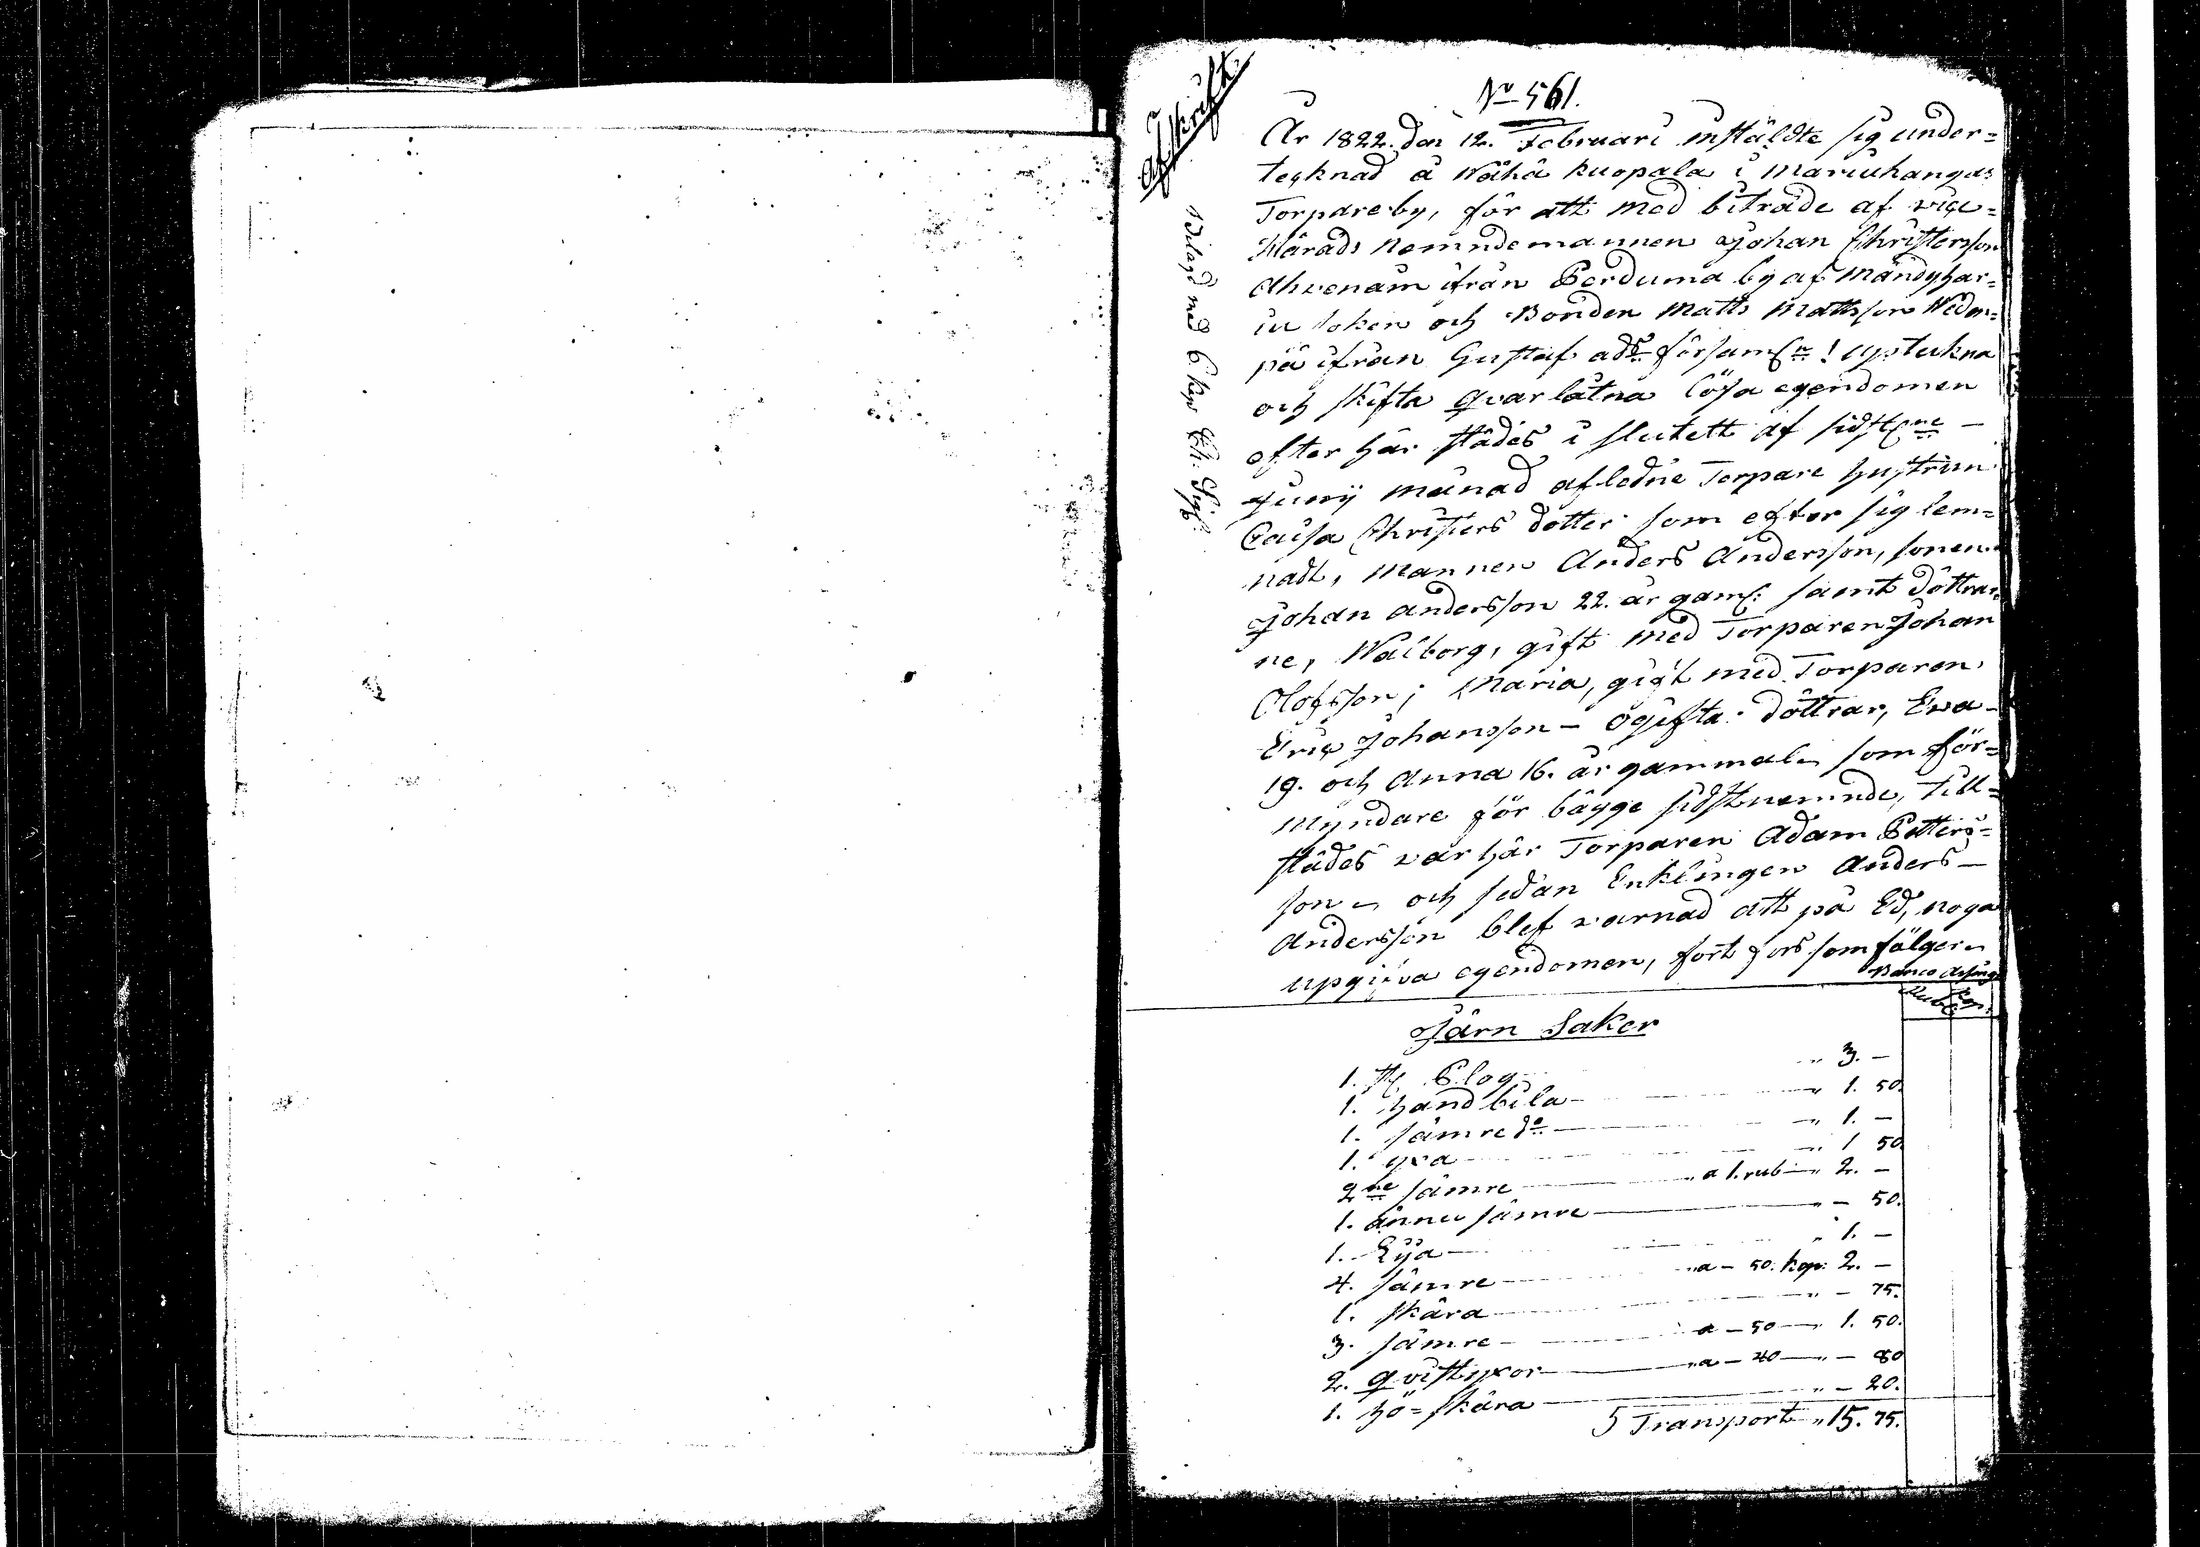 Afskrift.
No 561.
År 1822. den 12. Februari instäldte sig under=
tecknad å Wähä Kuopala i Mariuhangas
Torpareby, för att med biträde af vice=
Härads Nemndemannen Johan Christersson
Ahvenain ifrån Perduma by af Mändyhar=
iu soken och Bonden Matts Mattsson
på ifrån Gustaf ads församl: uptekna
och skifta qvarlåtna lösa egendomen
efter här städes i slutett af sidstl:ne —
Junij månad afledne Torpare hustrun
Caisa Christers dotter som efter sig lem=
nadt, mannen Anders Andersson, sonen
Johan Andersson 22. år gam: samt döttrar=
ne, Walborg, gift med Torparen Johan
Olofsson; Maria, gift med Torparen
Eric Johansson — ogifta döttrar, Eva —
19. och Anna 16. år gammal som för=
myndare för bägge sidstnemnde, till=
städes var här Torparen Adam Petters=
son och sedan Enklingen Anders —
Andersson blef varnad att på Ed, noga
upgifva egendomen, fort fors som fölger
Banco Assign
Rub: Kop:
Järn Saker
1. st Plog " 3. —
1. hand bila — " 1. 50.
1. sämre do — " 1. —
1. yxa — " 1 50.
2ne sämre — " a 1. rub — " 2. —
1. ännu sämre — " — 50.
1. Lija — " 1. —
4. sämre — " a — 50. kop: 2. —
1. skära — " — 75.
3. sämre — a — 50 — " 1. 50.
2. qvistyxor — " a — 40 — " — 80
1. hö=skära — " — 20.
Transport " 15. 75.
Belagd med 6. kop Ch: Sig: